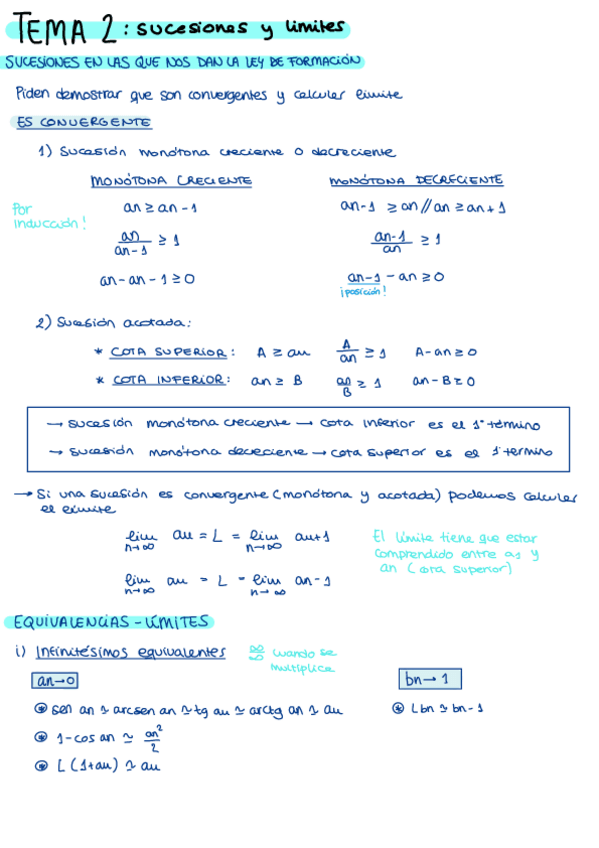 TEMA 2: sucesiones y límites
SUCESIONES EN LAS QUE NOS DAN LA LEY DE FORMACIÓN
Piden demostrar que son convergentes y calcular límite
ES CONVERGENTE
1) Sucesión monótona creciente o decreciente
MONÓTONA CRECIENTE
MONÓTONA DECRECIENTE
Por inducción!
an ≥ an-1
an-1 ≥ an // an ≥ an+1
an/an-1 ≥ 1
an-1/an ≥ 1
an - an-1 ≥ 0
an-1 - an ≥ 0
¡posición!
2) Sucesión acotada:
* COTA SUPERIOR: A ≥ an A/an ≥ 1 A-an ≥ 0
* COTA INFERIOR: an ≥ B an/B ≥ 1 an-B ≥ 0
→ sucesión monótona creciente → cota inferior es el 1º término
→ sucesión monótona decreciente → cota superior es el 1º termino
→ Si una sucesión es convergente (monótona y acotada) podemos calcular
el límite
lim n→∞ an = L = lim n→∞ an+1
lim n→∞ an = L = lim n→∞ an-1
El límite tiene que estar
comprendido entre a1 y
an (cota superior)
EQUIVALENCIAS - LÍMITES
i) Infinitésimos equivalentes
∞/∞ cuando se
multiplica
an→0
bn→1
* sen an ≃ arcsen an ≃ tg an ≃ arctg an ≃ an
* Lbn ≃ bn-1
* 1-cos an ≃ an²/2
* L(1+an) ≃ an